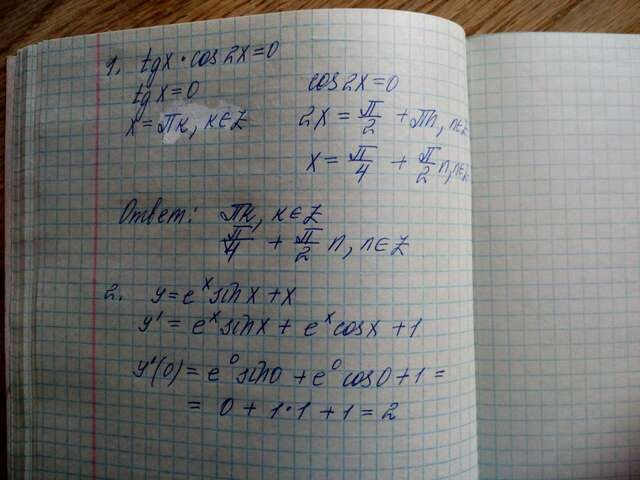 1. tgx · cos2x=0
tgx=0
x=πк, к∈Z
cos2x=0
2x = π/2 + πn, n∈Z
x = π/4 + π/2 n, n∈Z
Ответ: πк, к∈Z
π/4 + π/2 n, n∈Z
2. y=eˣsinx+x
y' = eˣsinx + eˣcosx +1
y'(0) = e⁰sin0 + e⁰cos0+1 =
= 0 + 1·1 +1 = 2